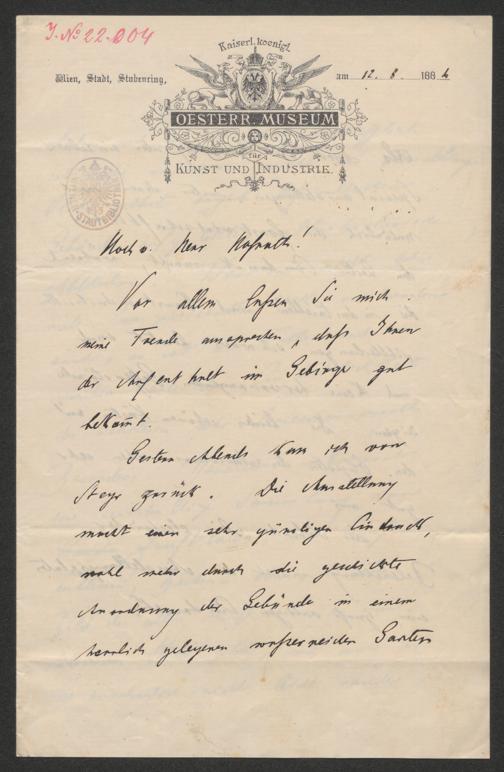 J. No 22.004
Kaiserl. koenigl.
Wien, Stadt, Stubenring,
am 12. 8. 1884
OESTERR. MUSEUM
für
KUNST UND INDUSTRIE.
Hoch v. Herr Hofrath!
Vor allem laßen Sie mich
meine Freude aussprechen, daß Ihnen
der Aufenthalt im Gebirge gut
bekomt.
Gestern Abends kam ich von
Steyr zurück. Die Ausstellung
macht einen sehr günstigen Eindruck,
wohl mehr durch die geschickte
Anordnung der Gebäude in einem
herrlich gelegenen waßerreichen Garten